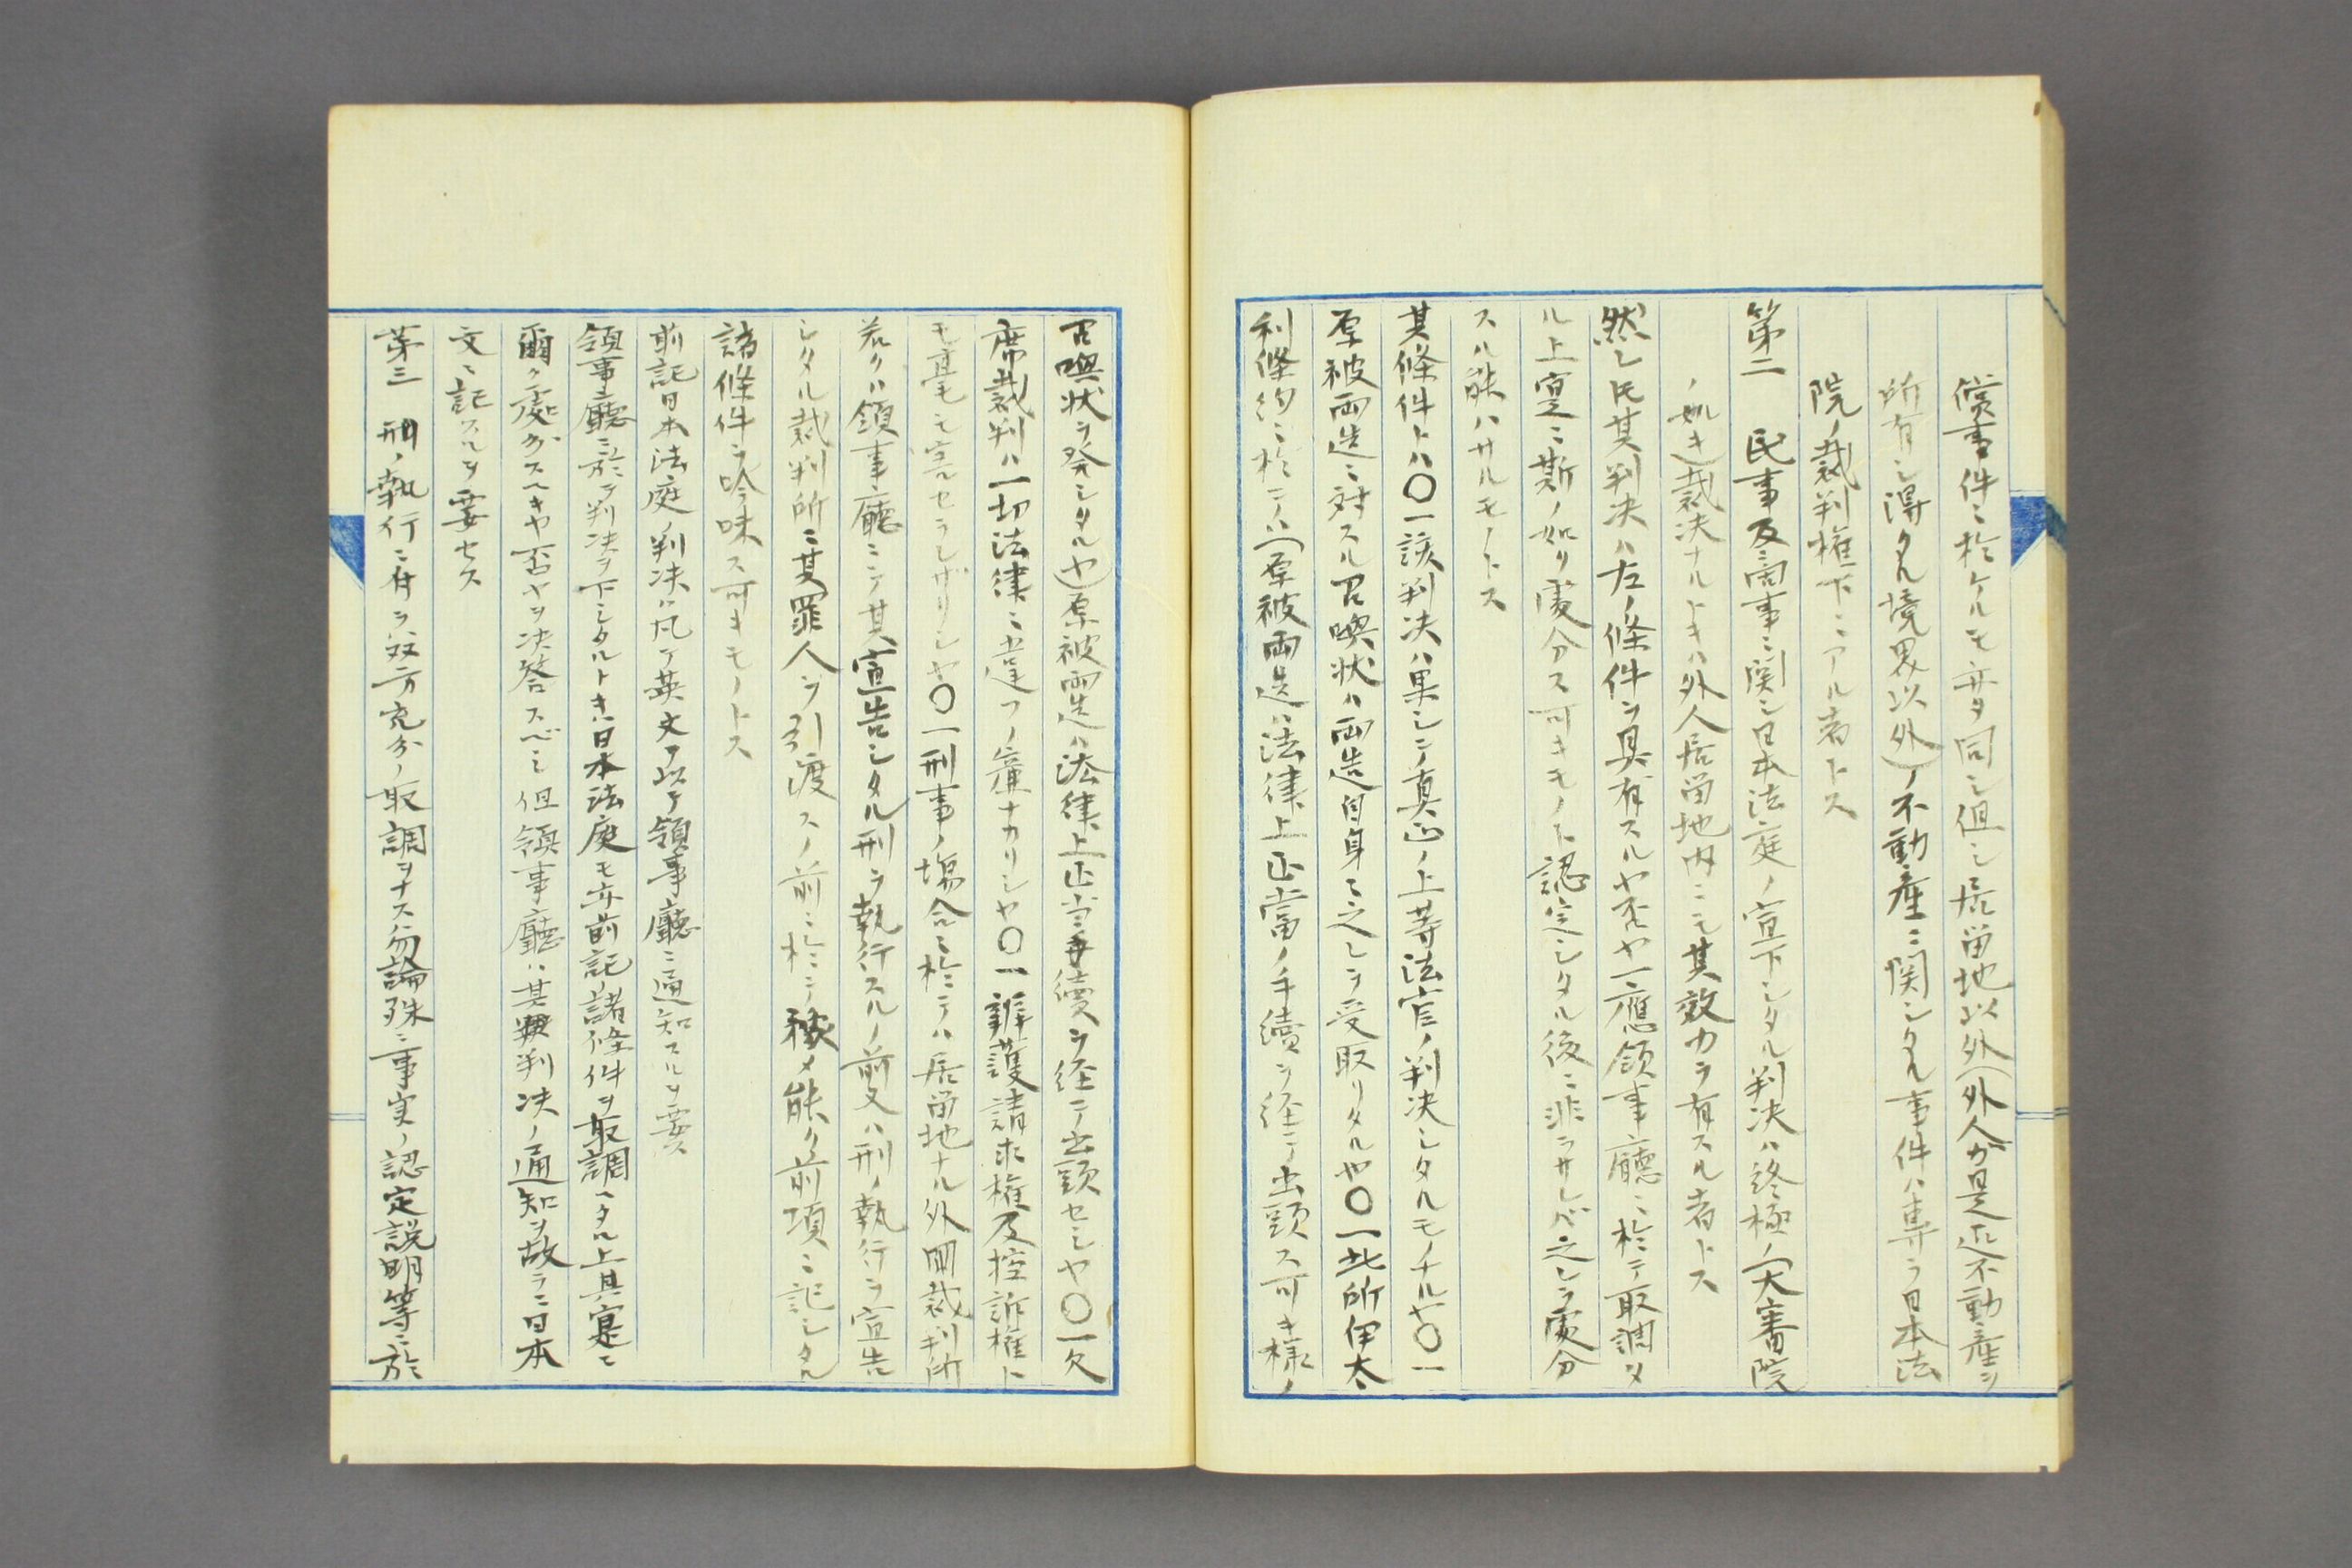 償事件ニ於ケルモ亦タ同シ但シ居留地以外(外人カ是迄不動産ヲ
所有シ得タル境界以外)ノ不動産ニ関シタル事件ハ専ラ日本法
院ノ裁判権下ニアル者トス
第二 民事及商事ニ関シ日本法庭ノ宣下シタル判决ハ終極ノ(大審院
ノ如キ)裁决ナルトキハ外人居留地内ニモ其效力ヲ有スル者トス
然レ𪜈其判决ハ左ノ條件ヲ具有スルヤ否ヤ一應領事廳ニ於テ取調タ
ル上寔ニ斯ノ如リ處分ス可キモノト認定シタル後ニ非ラサレバ之レヲ處分
スル能ハサルモノトス
其條件トハ〇一該判决ハ果シテ真正ノ上等法官ノ判决シタルモノナルヤ〇一
原被両造ニ対スル召喚状ハ両造自身ニ之レヲ受取リタルヤ〇一此所伊太
利條約ニ於テハ(原被両造ハ法律上正當ノ手續ヲ経テ出頭ス可キ様ノ
召喚状ヲ発シタルヤ)原被両造ハ法律上正当ノ手續ヲ経テ出頭セシヤ〇一欠
席裁判ハ一切法律ニ違フノ廉ナカリシヤ〇一辨護請求権及控訴権ト
モ毫モ害セラレザリシヤ〇一刑事ノ塲合ニ於テハ居留地ナル外国裁判所
若クハ領事廳ニテ其宣告シタル刑ヲ執行スルノ前又ハ刑ノ執行ヲ宣告
シタル裁判所ニ其罪人ヲ引渡スノ前ニ於テ豫メ能ク前項ニ記シタル
諸條件ヲ吟味ス可キモノトス
前記日本法庭ノ判决ハ凡テ英文ヲ以テ領事廳ニ通知スルヲ要ス
領事廳ニ於テ判决ヲ下シタルトキハ日本法庭モ亦前記ノ諸條件ヲ取調ヘタル上其寔ニ
爾ク處分スヘキヤ否ヤヲ决答スベシ但領事廳ハ其判决ノ通知ヲ故ラニ日本
文ニ記スルヲ要セス
第三 刑ノ執行ニ付テ双方充分ノ取調ヲナスハ勿論殊ニ事実ノ認定説明等ニ於